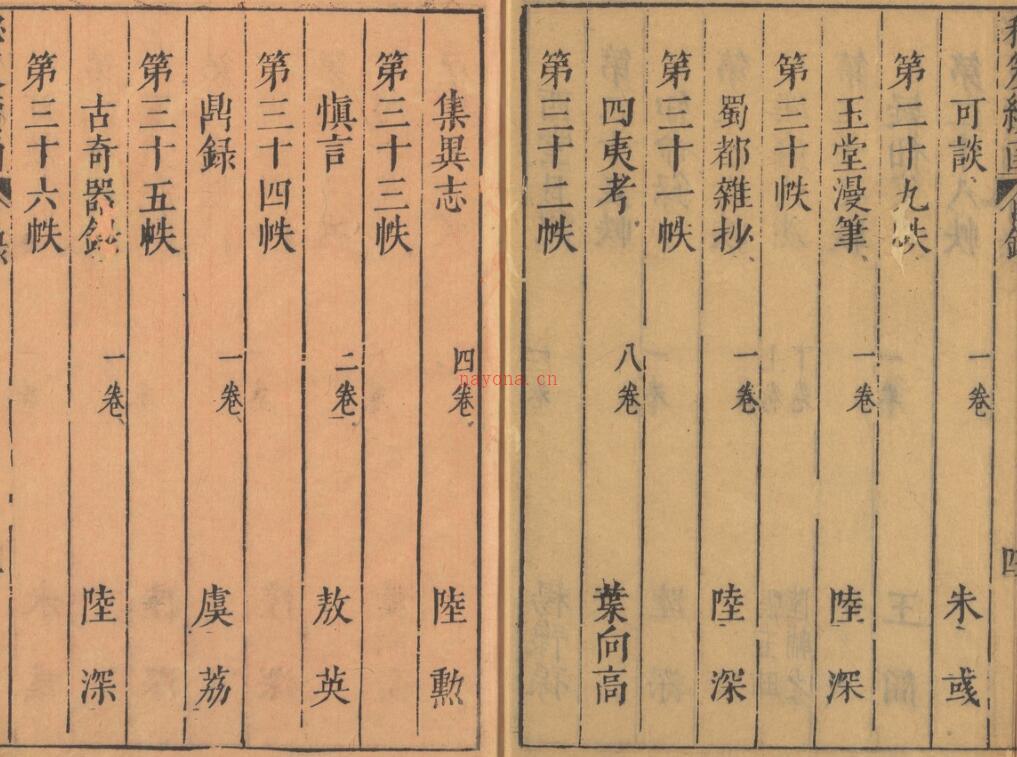 可談 一卷 朱彧
第二十九帙
玉堂漫筆 一卷 陸深
第三十帙
蜀都雜抄 一卷 陸深
第三十一帙
四夷考 八卷 葉向高
第三十二帙
集異志 四卷 陸勲
第三十三帙
慎言 二卷 敖英
第三十四帙
鼎録 一卷 虞荔
第三十五帙
古奇器録 一卷 陸深
第三十六帙
nayona.cn